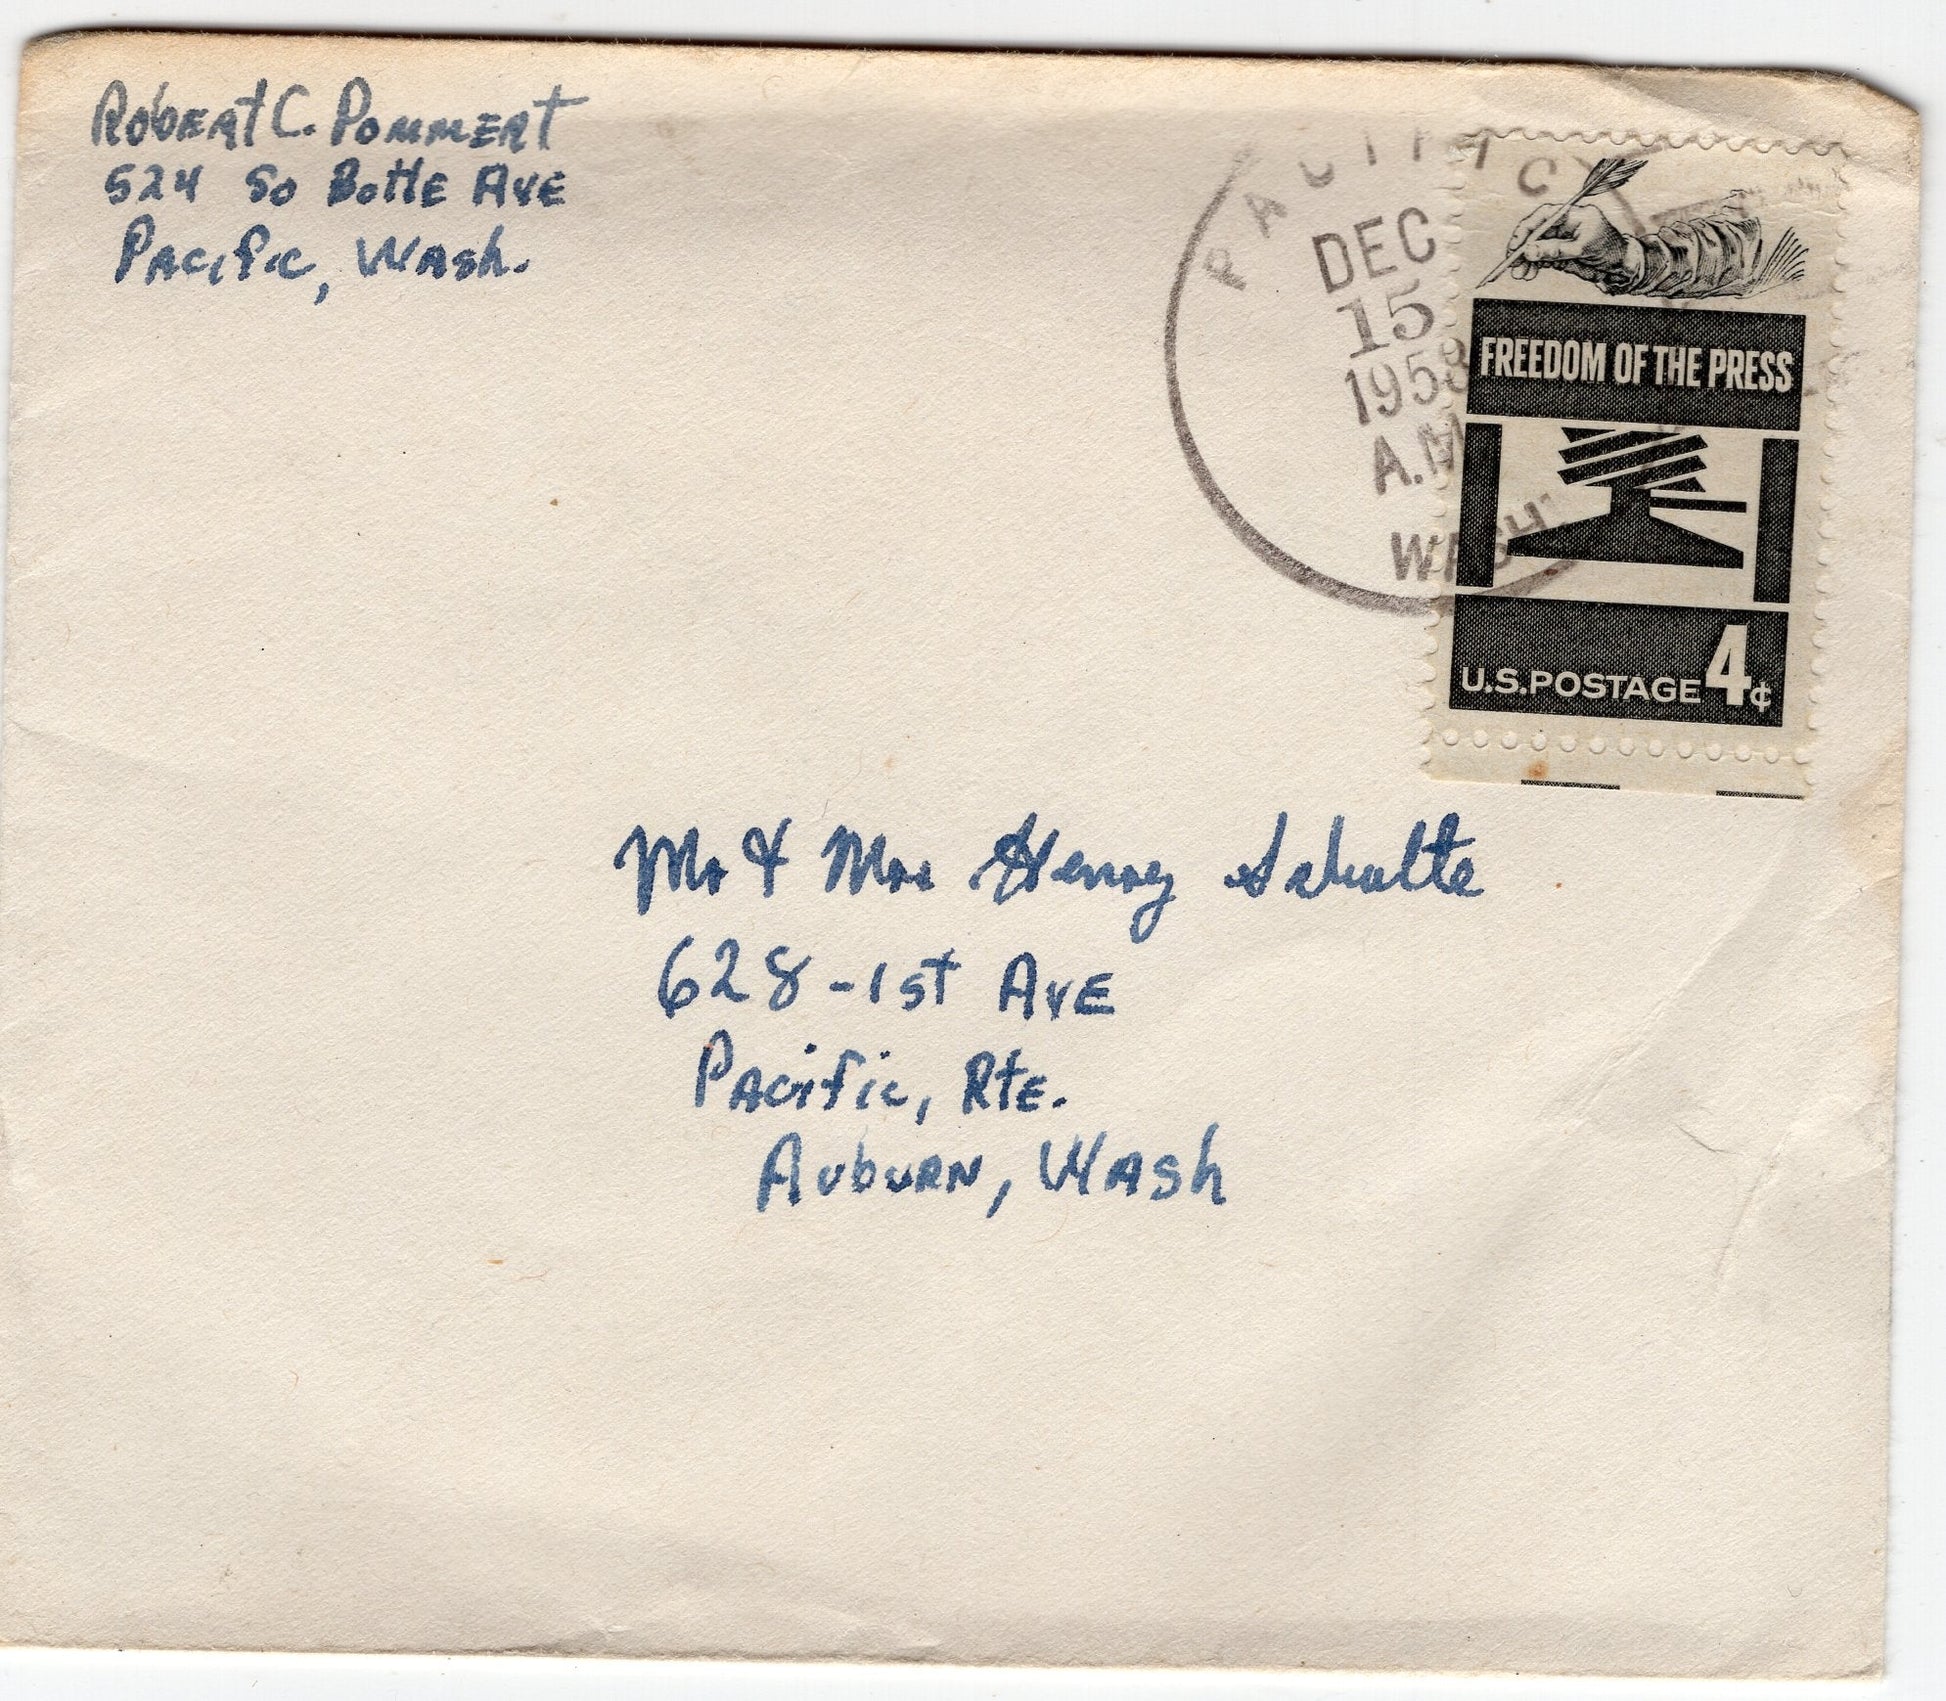 Robert C. Pommert
524 So Botte Ave
Pacific, Wash.
PACIFIC
DEC
15
1958
A.M
WASH
FREEDOM OF THE PRESS
U.S. POSTAGE 4¢
Mr & Mrs Henry Schulte
628-1st Ave
Pacific, Rte.
Auburn, Wash